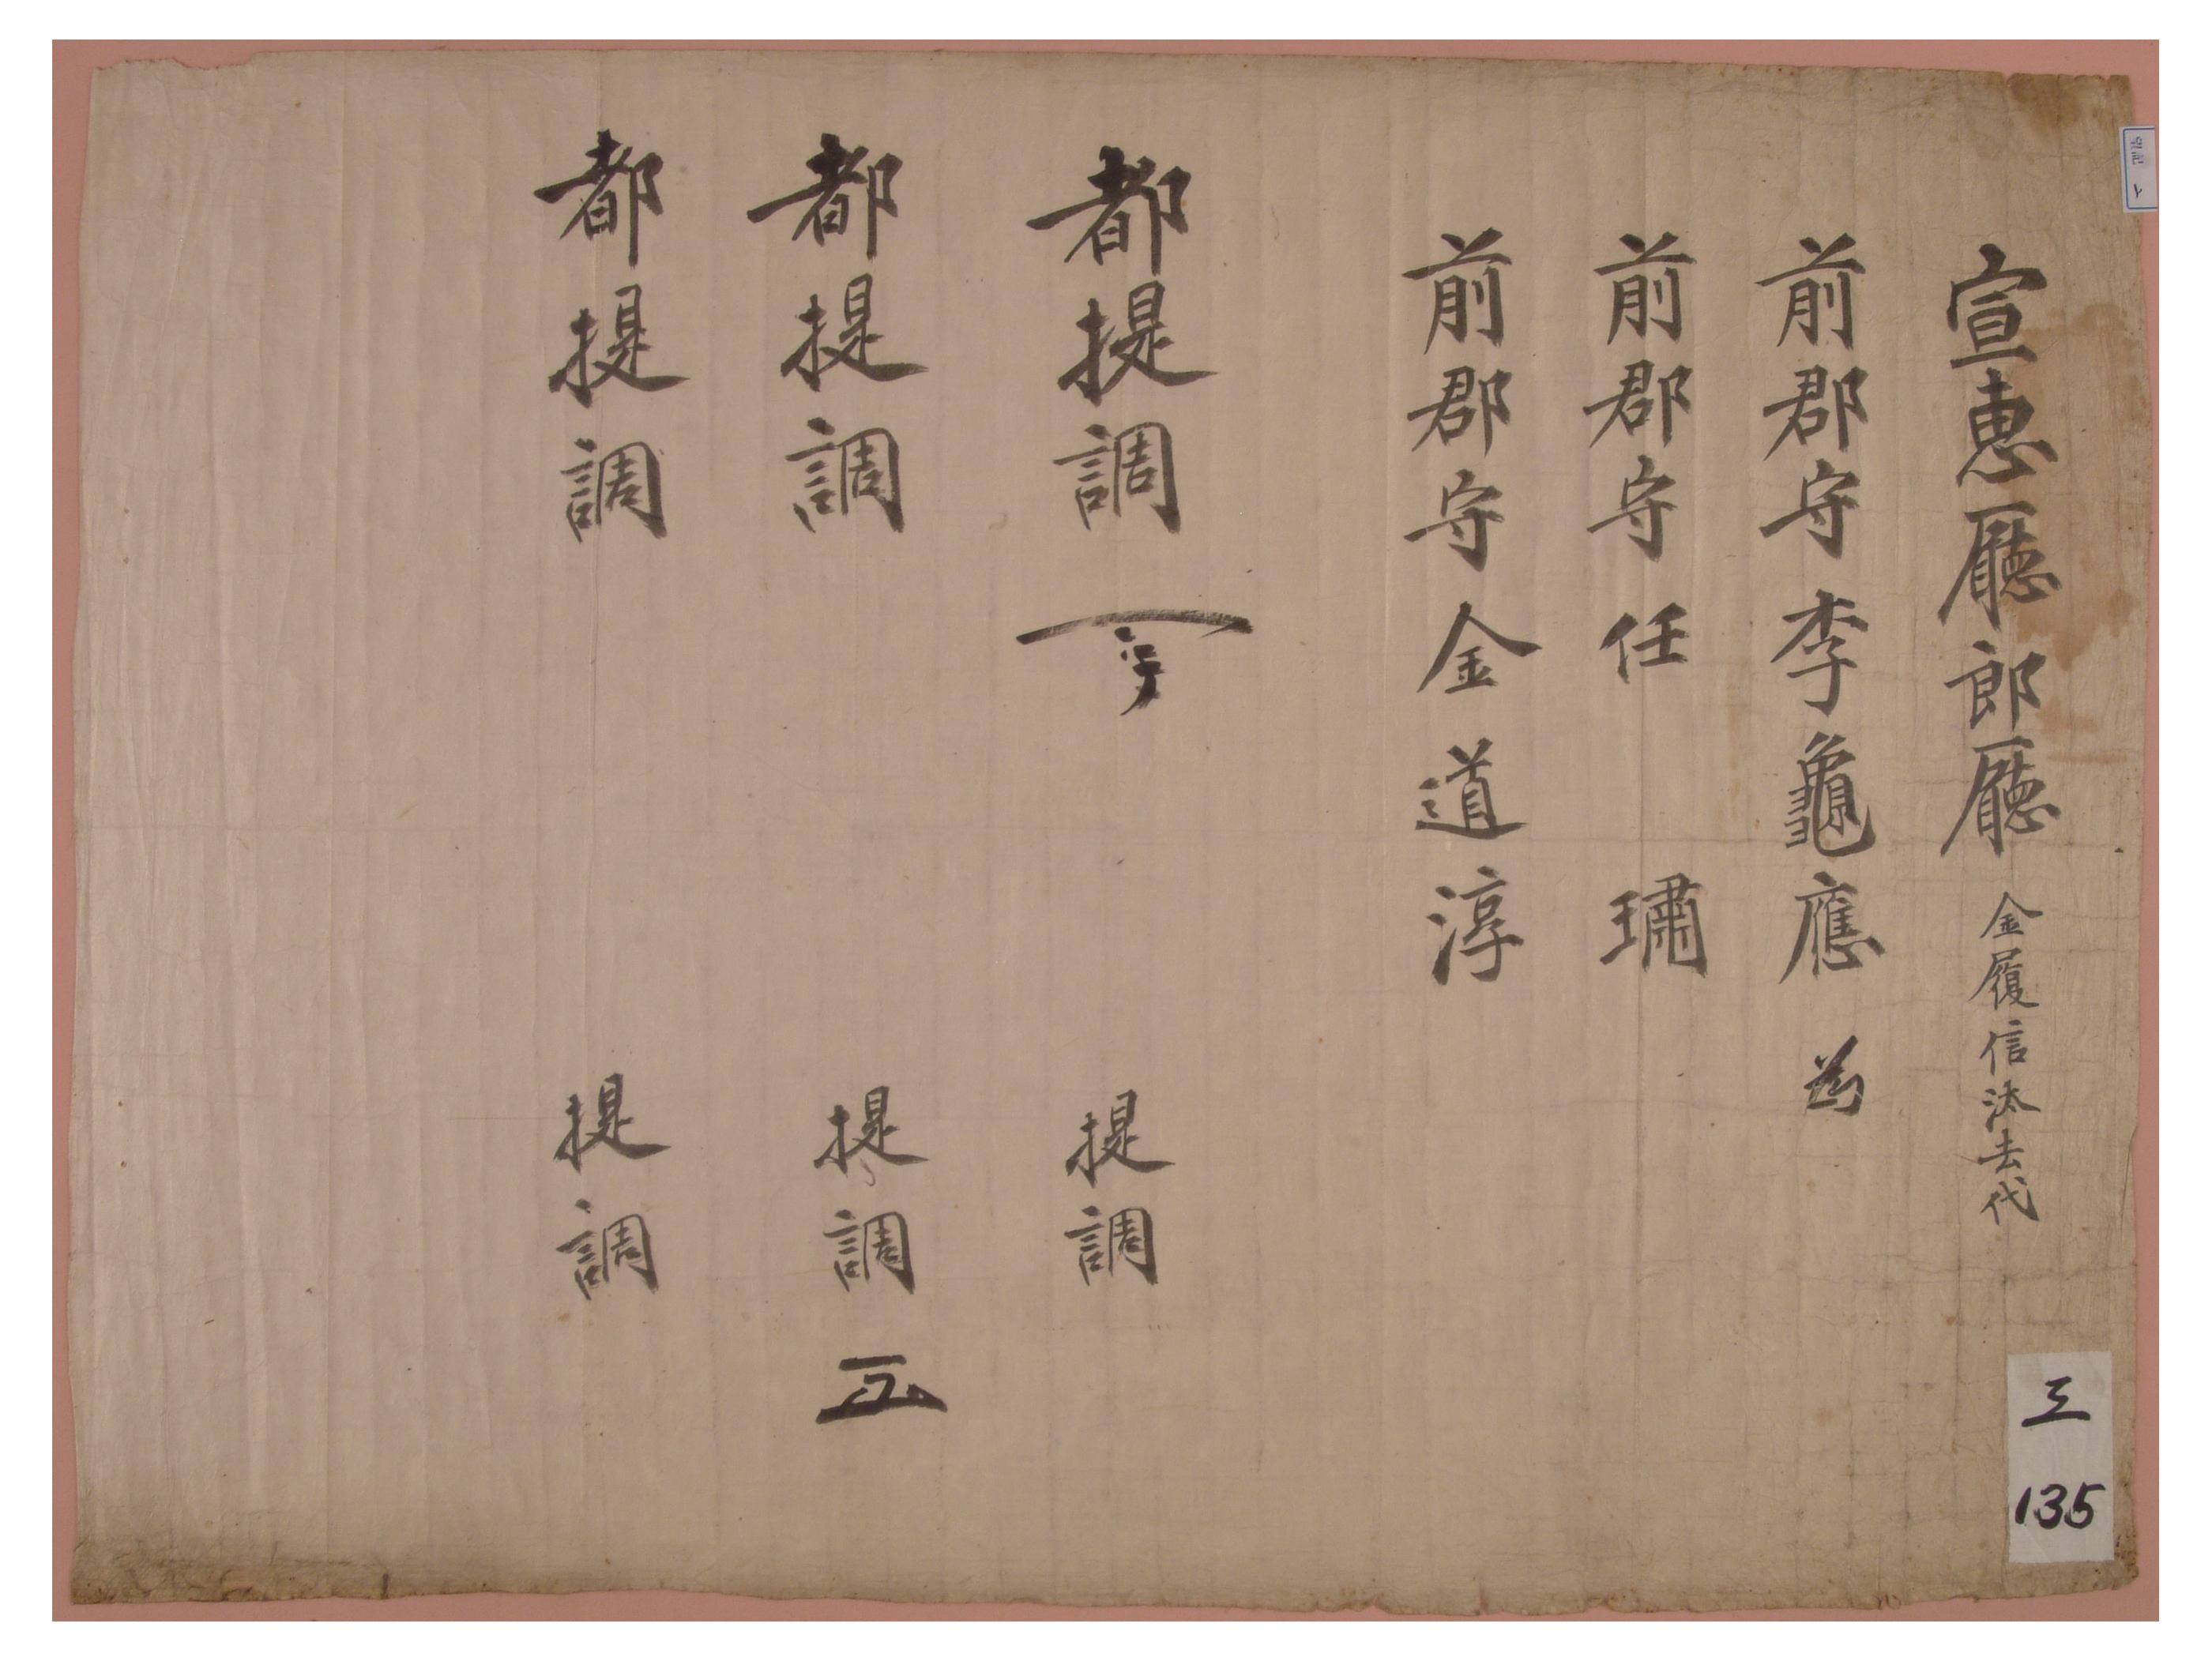 宣惠廳郎廳 金履信汰去代
前郡守李龜應
前郡守任 璛
前郡守金道淳
都提調 提調
都提調 提調
都提調 提調
三
135
望記